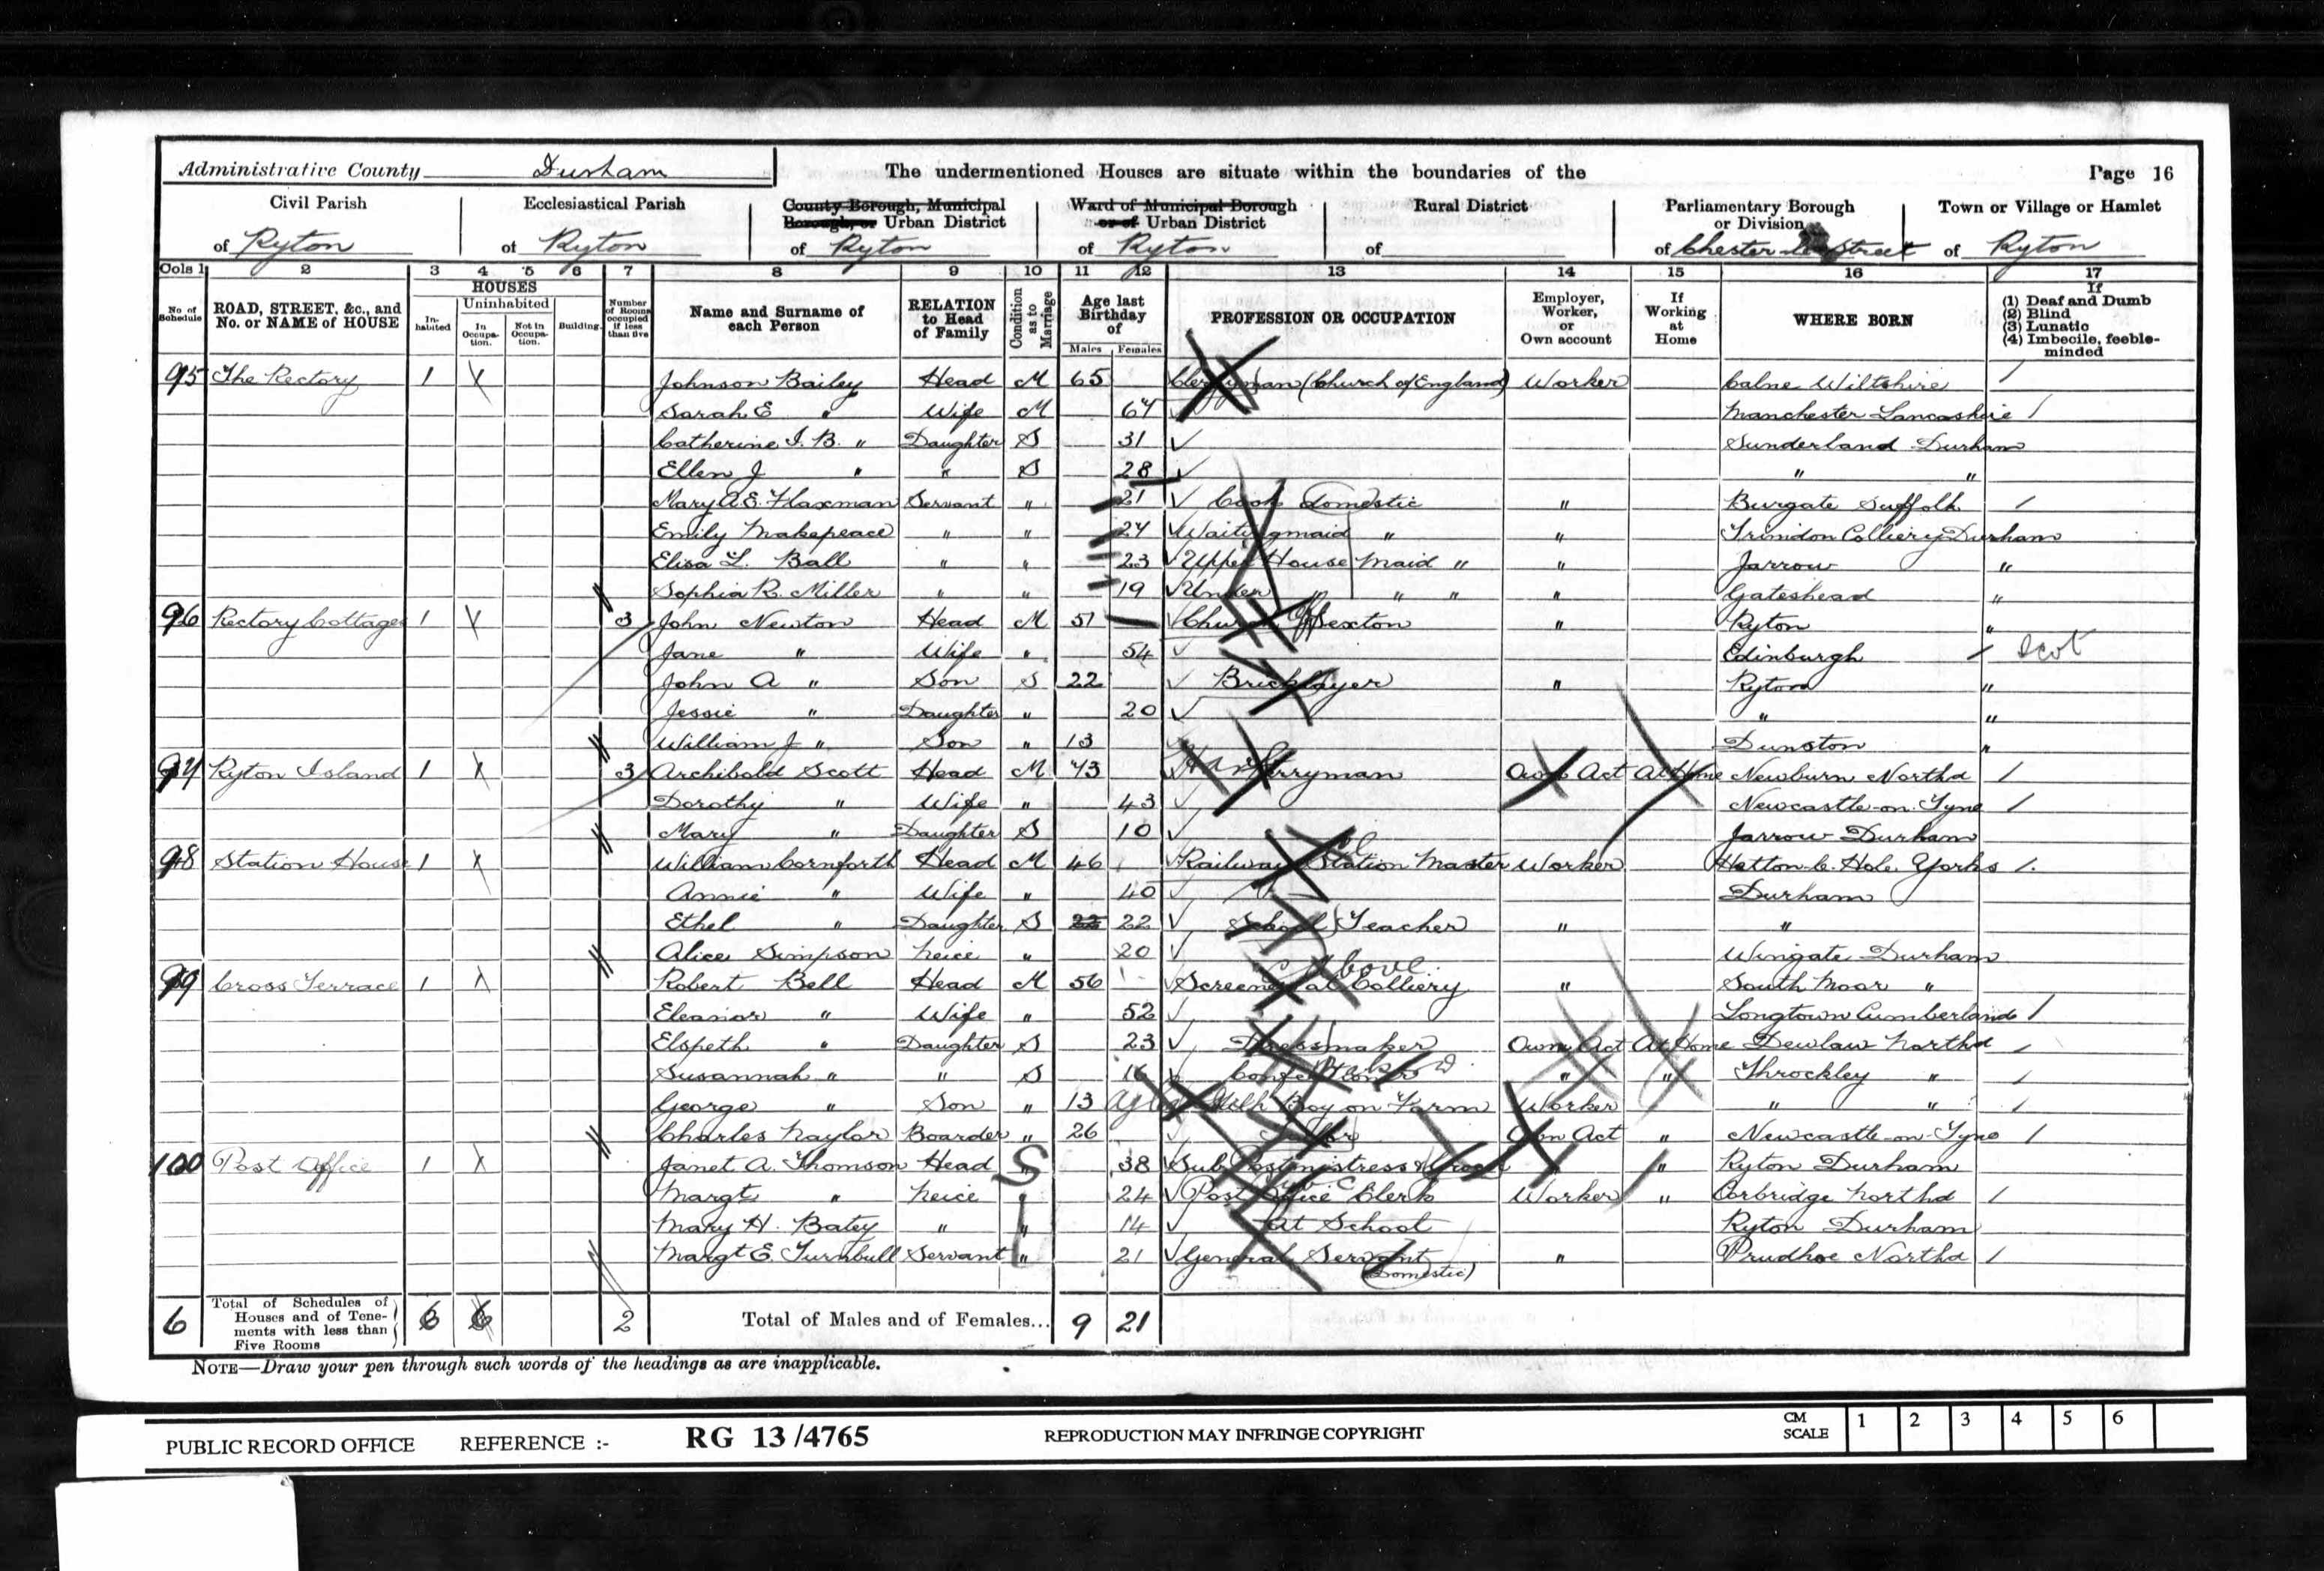 Administrative County Durham The undermentioned Houses are situate within the boundaries of the Page 16
Civil Parish Ecclesiastical Parish County Borough, Municipal Borough, or Urban District Ward of Municipal Borough or of Urban District Rural District Parliamentary Borough or Division Town or Village or Hamlet
of Ryton of Ryton of Ryton of Ryton of of Chester Le Street of Ryton
Cols 1 2 3 4 5 6 7 8 9 10 11 12 13 14 15 16 17
No of Schedule ROAD, STREET, &c., and No. or NAME of HOUSE HOUSES Inhabited Uninhabited In Occupation. Not in Occupation. Building. Number of Rooms occupied if less than five Name and Surname of each Person RELATION to Head of Family Condition as to Marriage Age last Birthday of Males Females PROFESSION OR OCCUPATION Employer, Worker, or Own account If Working at Home WHERE BORN If (1) Deaf and Dumb (2) Blind (3) Lunatic (4) Imbecile, feeble-minded
95 The Rectory 1 X Johnson Bailey Head M 65 Clergyman (Church of England) Worker Calne Wiltshire
Sarah E " Wife M 64 Manchester Lancashire
Catherine I. B. " Daughter S 31 Sunderland Durham
Ellen J " " S 28 " "
Mary A E. Flaxman Servant " 21 Cook domestic " Burgate Suffolk
Emily Makepeace " " 24 Waitingmaid " " Trimdon Colliery Durham
Elisa L. Ball " " 23 Upper House Maid " " Jarrow "
Sophia R. Miller " " 19 Under " " " " Gateshead "
96 Rectory Cottage 1 X 3 John Newton Head M 51 Church Sexton " Ryton "
Jane " Wife " 54 Edinburgh Scot
John A " Son S 22 Bricklayer " Ryton "
Jessie " Daughter " 20 " "
William J " Son " 13 Dunston "
97 Ryton Island 1 X 3 Archibald Scott Head M 43 Ferryman Own Act At Home Newburn Northd
Dorothy " Wife " 43 Newcastle-on-Tyne
Mary " Daughter S 10 Jarrow Durham
98 Station House 1 X William Cornforth Head M 46 Railway Station Master Worker Hetton-le-Hole Yorks
Annie " Wife " 40 Durham
Ethel " Daughter S 22 22 School Teacher " "
Alice Simpson Neice " 20 Wingate Durham
99 Cross Terrace 1 X Robert Bell Head M 56 Screener at Colliery above " South Moor "
Eleanor " Wife " 52 Longtown Cumberland
Elspeth " Daughter S 23 Dressmaker Own Act At Home Dewlaw Northd
Susannah " " S 16 Confectioner " " Throckley "
George " Son " 13 Milk Boy on Farm Worker " "
Charles Naylor Boarder " 26 Tailor Own Act " Newcastle-on-Tyne
100 Post Office 1 X Janet A. Thomson Head S 38 Sub Postmistress & Grocer " " Ryton Durham
Margt " Neice " 24 Post Office Clerk Worker " Corbridge Northd
Mary H. Batey " " 14 At School Ryton Durham
Margt E. Turnbull Servant " 21 General Servant (Domestic) " Prudhoe Northd
6 Total of Schedules of Houses and of Tenements with less than Five Rooms 6 6 2 Total of Males and of Females... 9 21
NOTE—Draw your pen through such words of the headings as are inapplicable.
PUBLIC RECORD OFFICE REFERENCE :- RG 13 /4765 REPRODUCTION MAY INFRINGE COPYRIGHT CM SCALE 1 2 3 4 5 6